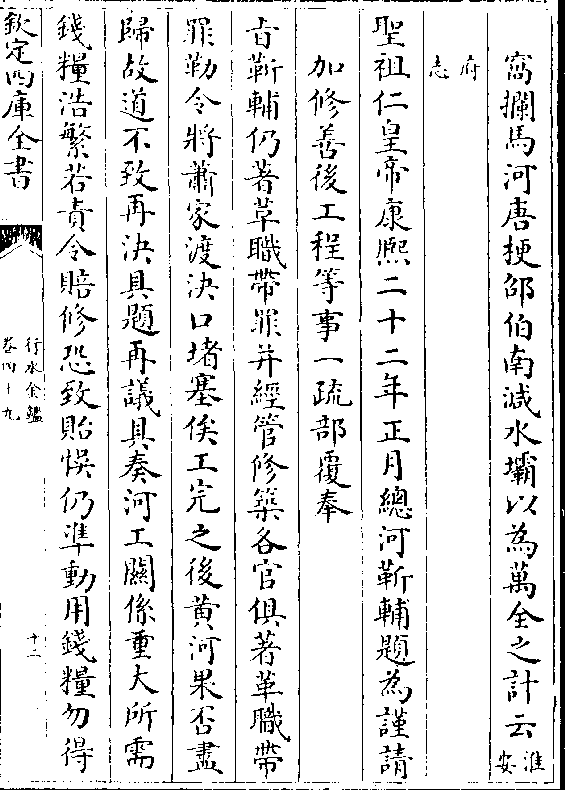 窩攔馬河唐埂邵伯南減水壩以為萬全之計云淮安
府志
聖祖仁皇帝康熙二十二年正月總河靳輔題為謹請
加修善後工程等事一疏部覆奉
旨靳輔仍著革職帶罪并經管修築各官俱著革職帶
罪勒令將蕭家渡決口堵塞俟工完之後黃河果否盡
歸故道不致再決具題再議具奏河工關係重大所需
錢糧浩繁若責令賠修恐致貽悞仍準動用錢糧勿得
欽定四庫全書
行水金鑑
卷四十九
十二